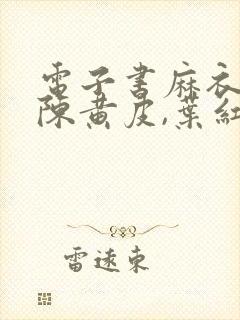 電子書麻衣
陳黃皮,葉紅
雷遠東